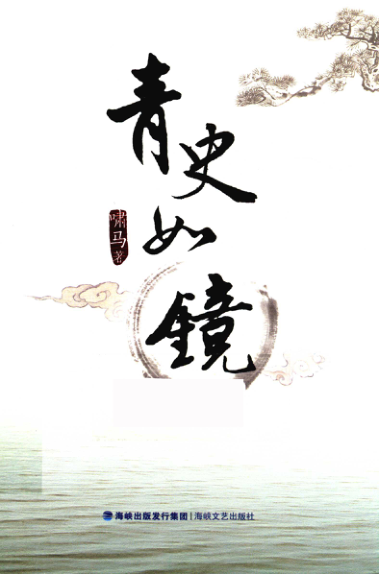 青史如镜
啸马 著
海峡出版发行集团 | 海峡文艺出版社